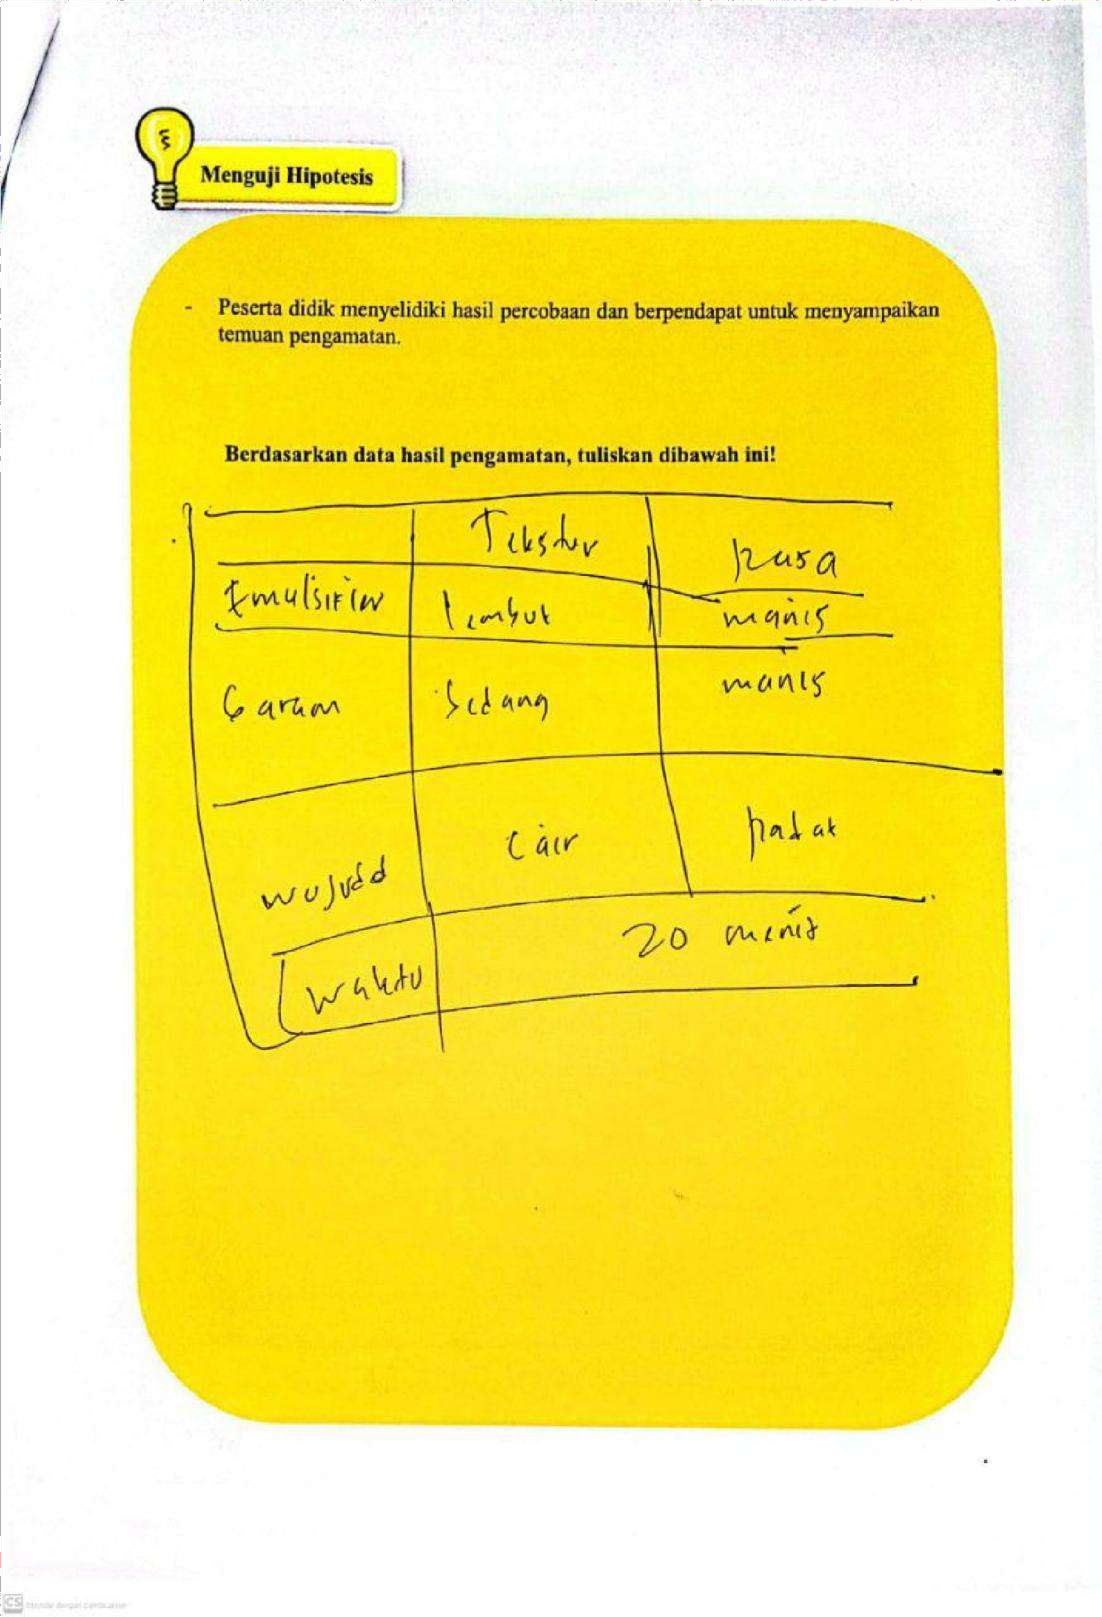 Menguji Hipotesis
- Peserta didik menyelidiki hasil percobaan dan berpendapat untuk menyampaikan
temuan pengamatan.
Berdasarkan data hasil pengamatan, tuliskan dibawah ini!
Tekstur Rasa
Emulsifier lembut manis
Garam Sedang manis
wujud Cair padat
waktu 20 menit
CS